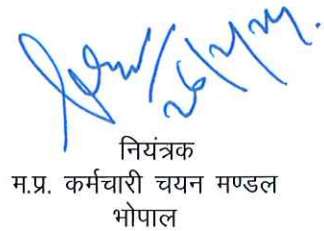 नियंत्रक
म.प्र. कर्मचारी चयन मण्डल
भोपाल